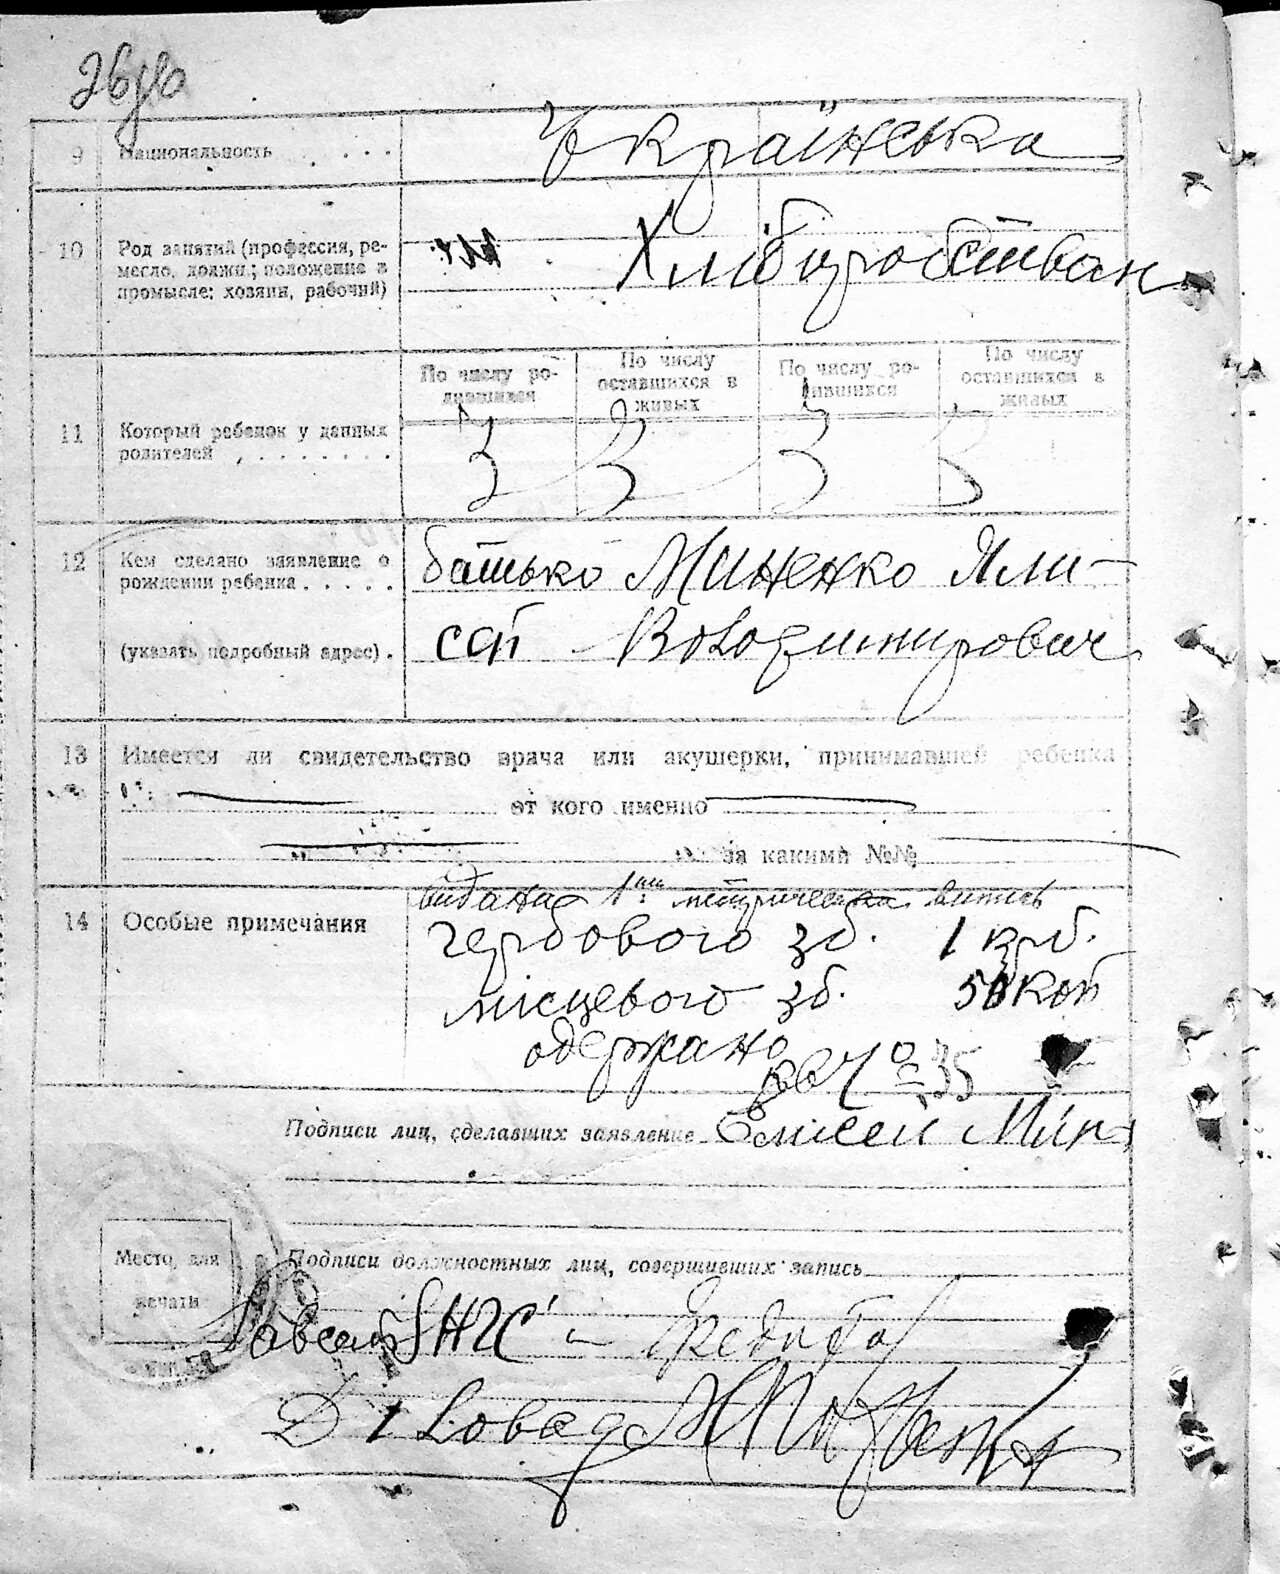 9 Национальность Українська
10 Род занятий (профессия, ре-
месло, должн.; положение в
промысле: хозяин, рабочий)
Хліборобство
По числу ро-
дившихся
По числу
оставшихся в
живых
По числу ро-
дившихся
По числу
оставшихся в
живых
11 Который ребенок у данных
родителей
3 3 3 3
12 Кем сделано заявление о
рождении ребенка
батько Миненко Яли-
(указать подробный адрес). сей Володимирович
13 Имеется ли свидетельство врача или акушерки, принимавшей ребенка
от кого именно
за какими №№
видана 1 метрическа випись
14 Особые примечания
гербового зб. 1 крб.
місцевого зб. 50 коп
одержано
35
Подписи лиц, сделавших заявление Єлисей Мин
Подписи должностных лиц, совершивших запись
Место для
печати
Голова
Діловод